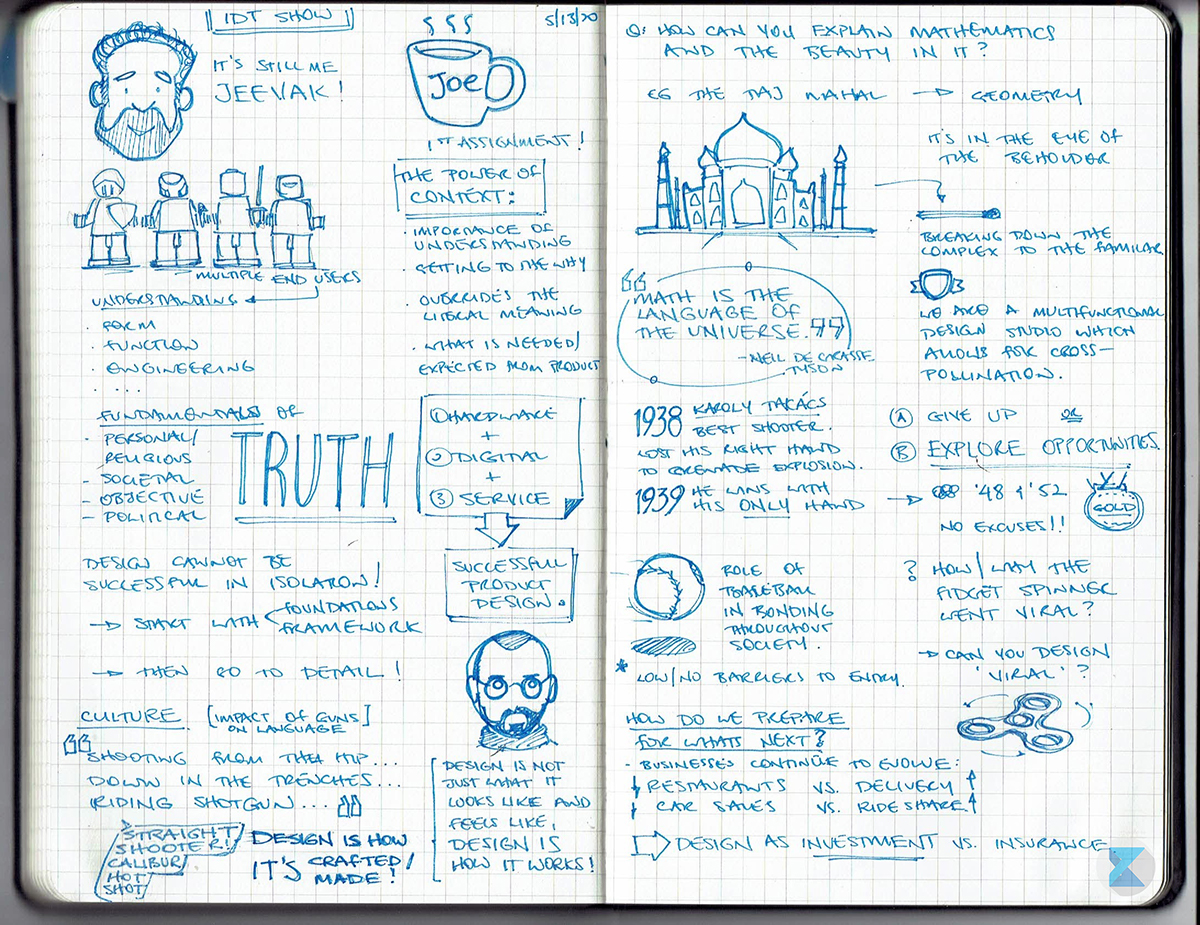 IDT SHOW
5/13/20
IT'S STILL ME
JEEVAK!
JOE
1ST ASSIGNMENT!
MULTIPLE END USERS
UNDERSTANDING
· FORM
· FUNCTION
· ENGINEERING
· ...
THE POWER OF
CONTEXT:
· IMPORTANCE OF
UNDERSTANDING
· GETTING TO THE WHY
· OVERRIDES THE
LITERAL MEANING
· WHAT IS NEEDED/
EXPECTED FROM PRODUCT
FUNDAMENTALS OF
TRUTH
- PERSONAL/
RELIGIOUS
- SOCIETAL
- OBJECTIVE
- POLITICAL
① HARDWARE
+
② DIGITAL
+
③ SERVICE
SUCCESSFUL
PRODUCT
DESIGN.
DESIGN CANNOT BE
SUCCESSFUL IN ISOLATION!
→ START WITH
FOUNDATIONS
FRAMEWORK
→ THEN GO TO DETAIL!
CULTURE [IMPACT OF GUNS]
ON LANGUAGE
"SHOOTING FROM THE HIP...
DOWN IN THE TRENCHES...
RIDING SHOTGUN..."
STRAIGHT
SHOOTER!
CALIBUR/
HOT
SHOT/
DESIGN IS HOW
IT'S CRAFTED/
MADE!
DESIGN IS NOT
JUST WHAT IT
LOOKS LIKE AND
FEELS LIKE,
DESIGN IS
HOW IT WORKS!
Q: HOW CAN YOU EXPLAIN MATHEMATICS
AND THE BEAUTY IN IT?
EG THE TAJ MAHAL → GEOMETRY
IT'S IN THE EYE OF
THE BEHOLDER
BREAKING DOWN THE
COMPLEX TO THE FAMILAR
"MATH IS THE
LANGUAGE OF
THE UNIVERSE."
- NEIL DE GRASSE
TYSON
WE ARE A MULTIFUNCTIONAL
DESIGN STUDIO WHICH
ALLOWS FOR CROSS-
POLLINATION.
1938 KAROLY TAKÁCS
BEST SHOOTER.
LOST HIS RIGHT HAND
TO GRENADE EXPLOSION.
1939 HE WINS WITH
HIS ONLY HAND
Ⓐ GIVE UP OR
Ⓑ EXPLORE OPPORTUNITIES.
→ '48 & '52
NO EXCUSES!!
GOLD
ROLE OF
BASEBALL
IN BONDING
THROUGHOUT
SOCIETY.
* LOW/NO BARRIERS TO ENTRY.
? HOW/WHY THE
FIDGET SPINNER
WENT VIRAL?
→ CAN YOU DESIGN
'VIRAL'?
HOW DO WE PREPARE
FOR WHATS NEXT?
- BUSINESSES CONTINUE TO EVOLVE:
↓ RESTAURANTS VS. DELIVERY ↑
↓ CAR SALES VS. RIDESHARE ↑
DESIGN AS INVESTMENT VS. INSURANCE